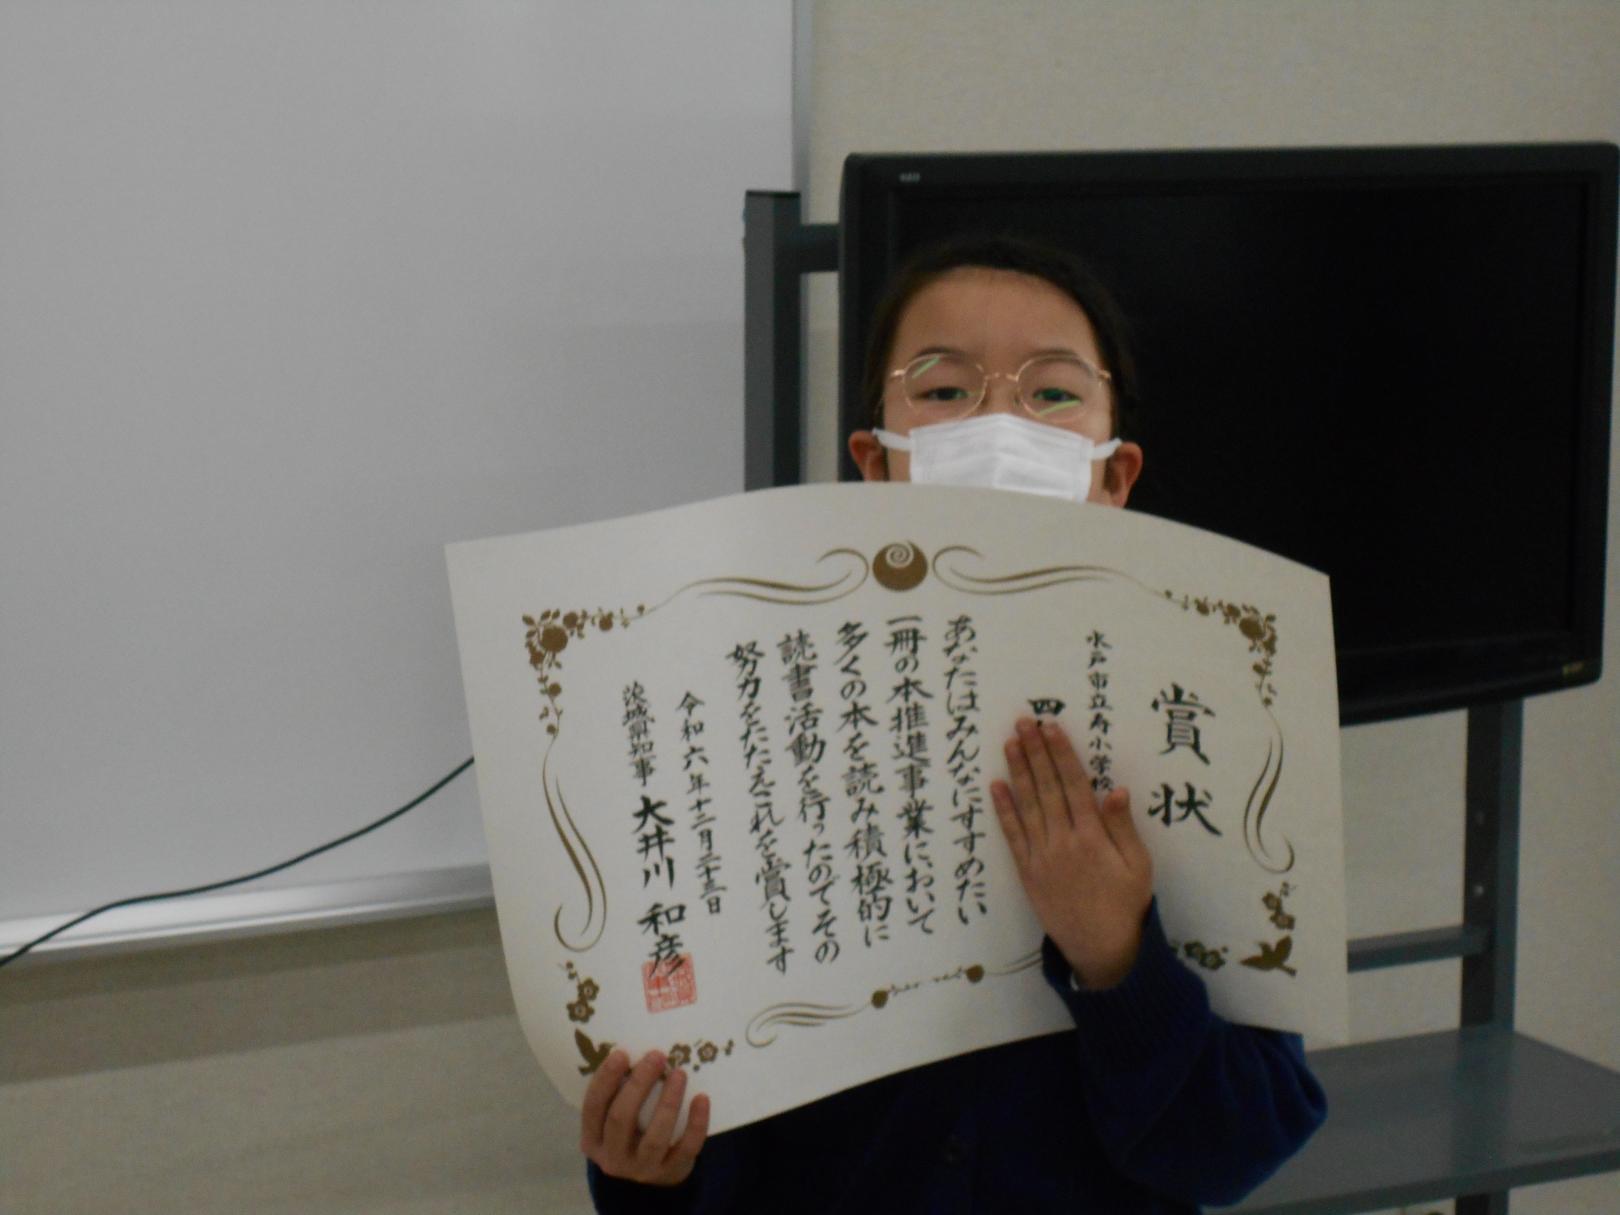 賞状
水戸市立寿小学校
四
あなたはみんなにすすめたい
一冊の本推進事業において
多くの本を読み積極的に
読書活動を行ったのでその
努力をたたえこれを賞します
令和六年十二月二十三日
茨城県知事 大井川 和彦